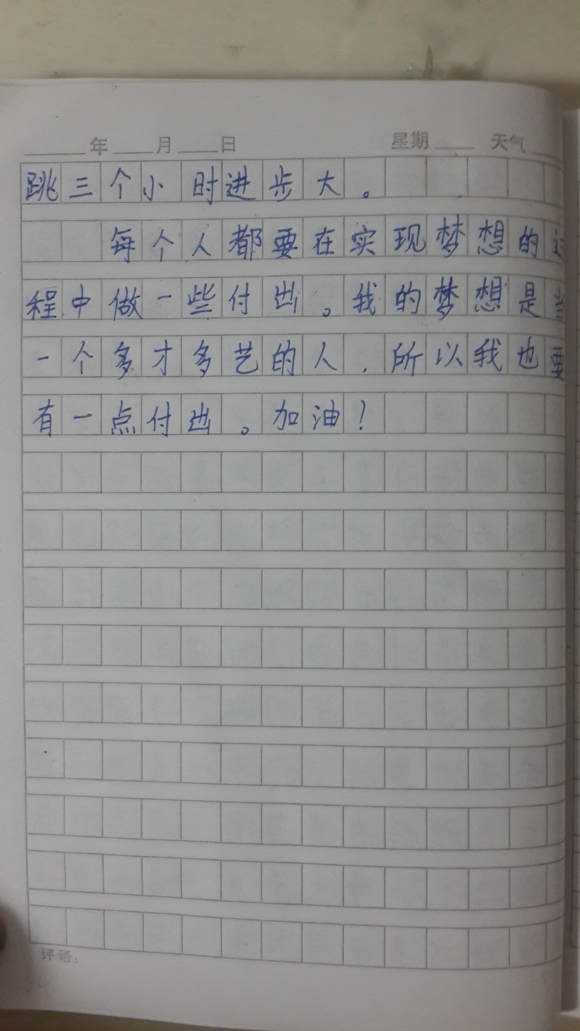 年 月 日 星期 天气
跳三个小时进步大。
每个人都要在实现梦想的过
程中做一些付出。我的梦想是当
一个多才多艺的人，所以我也要
有一点付出。加油！
评语：